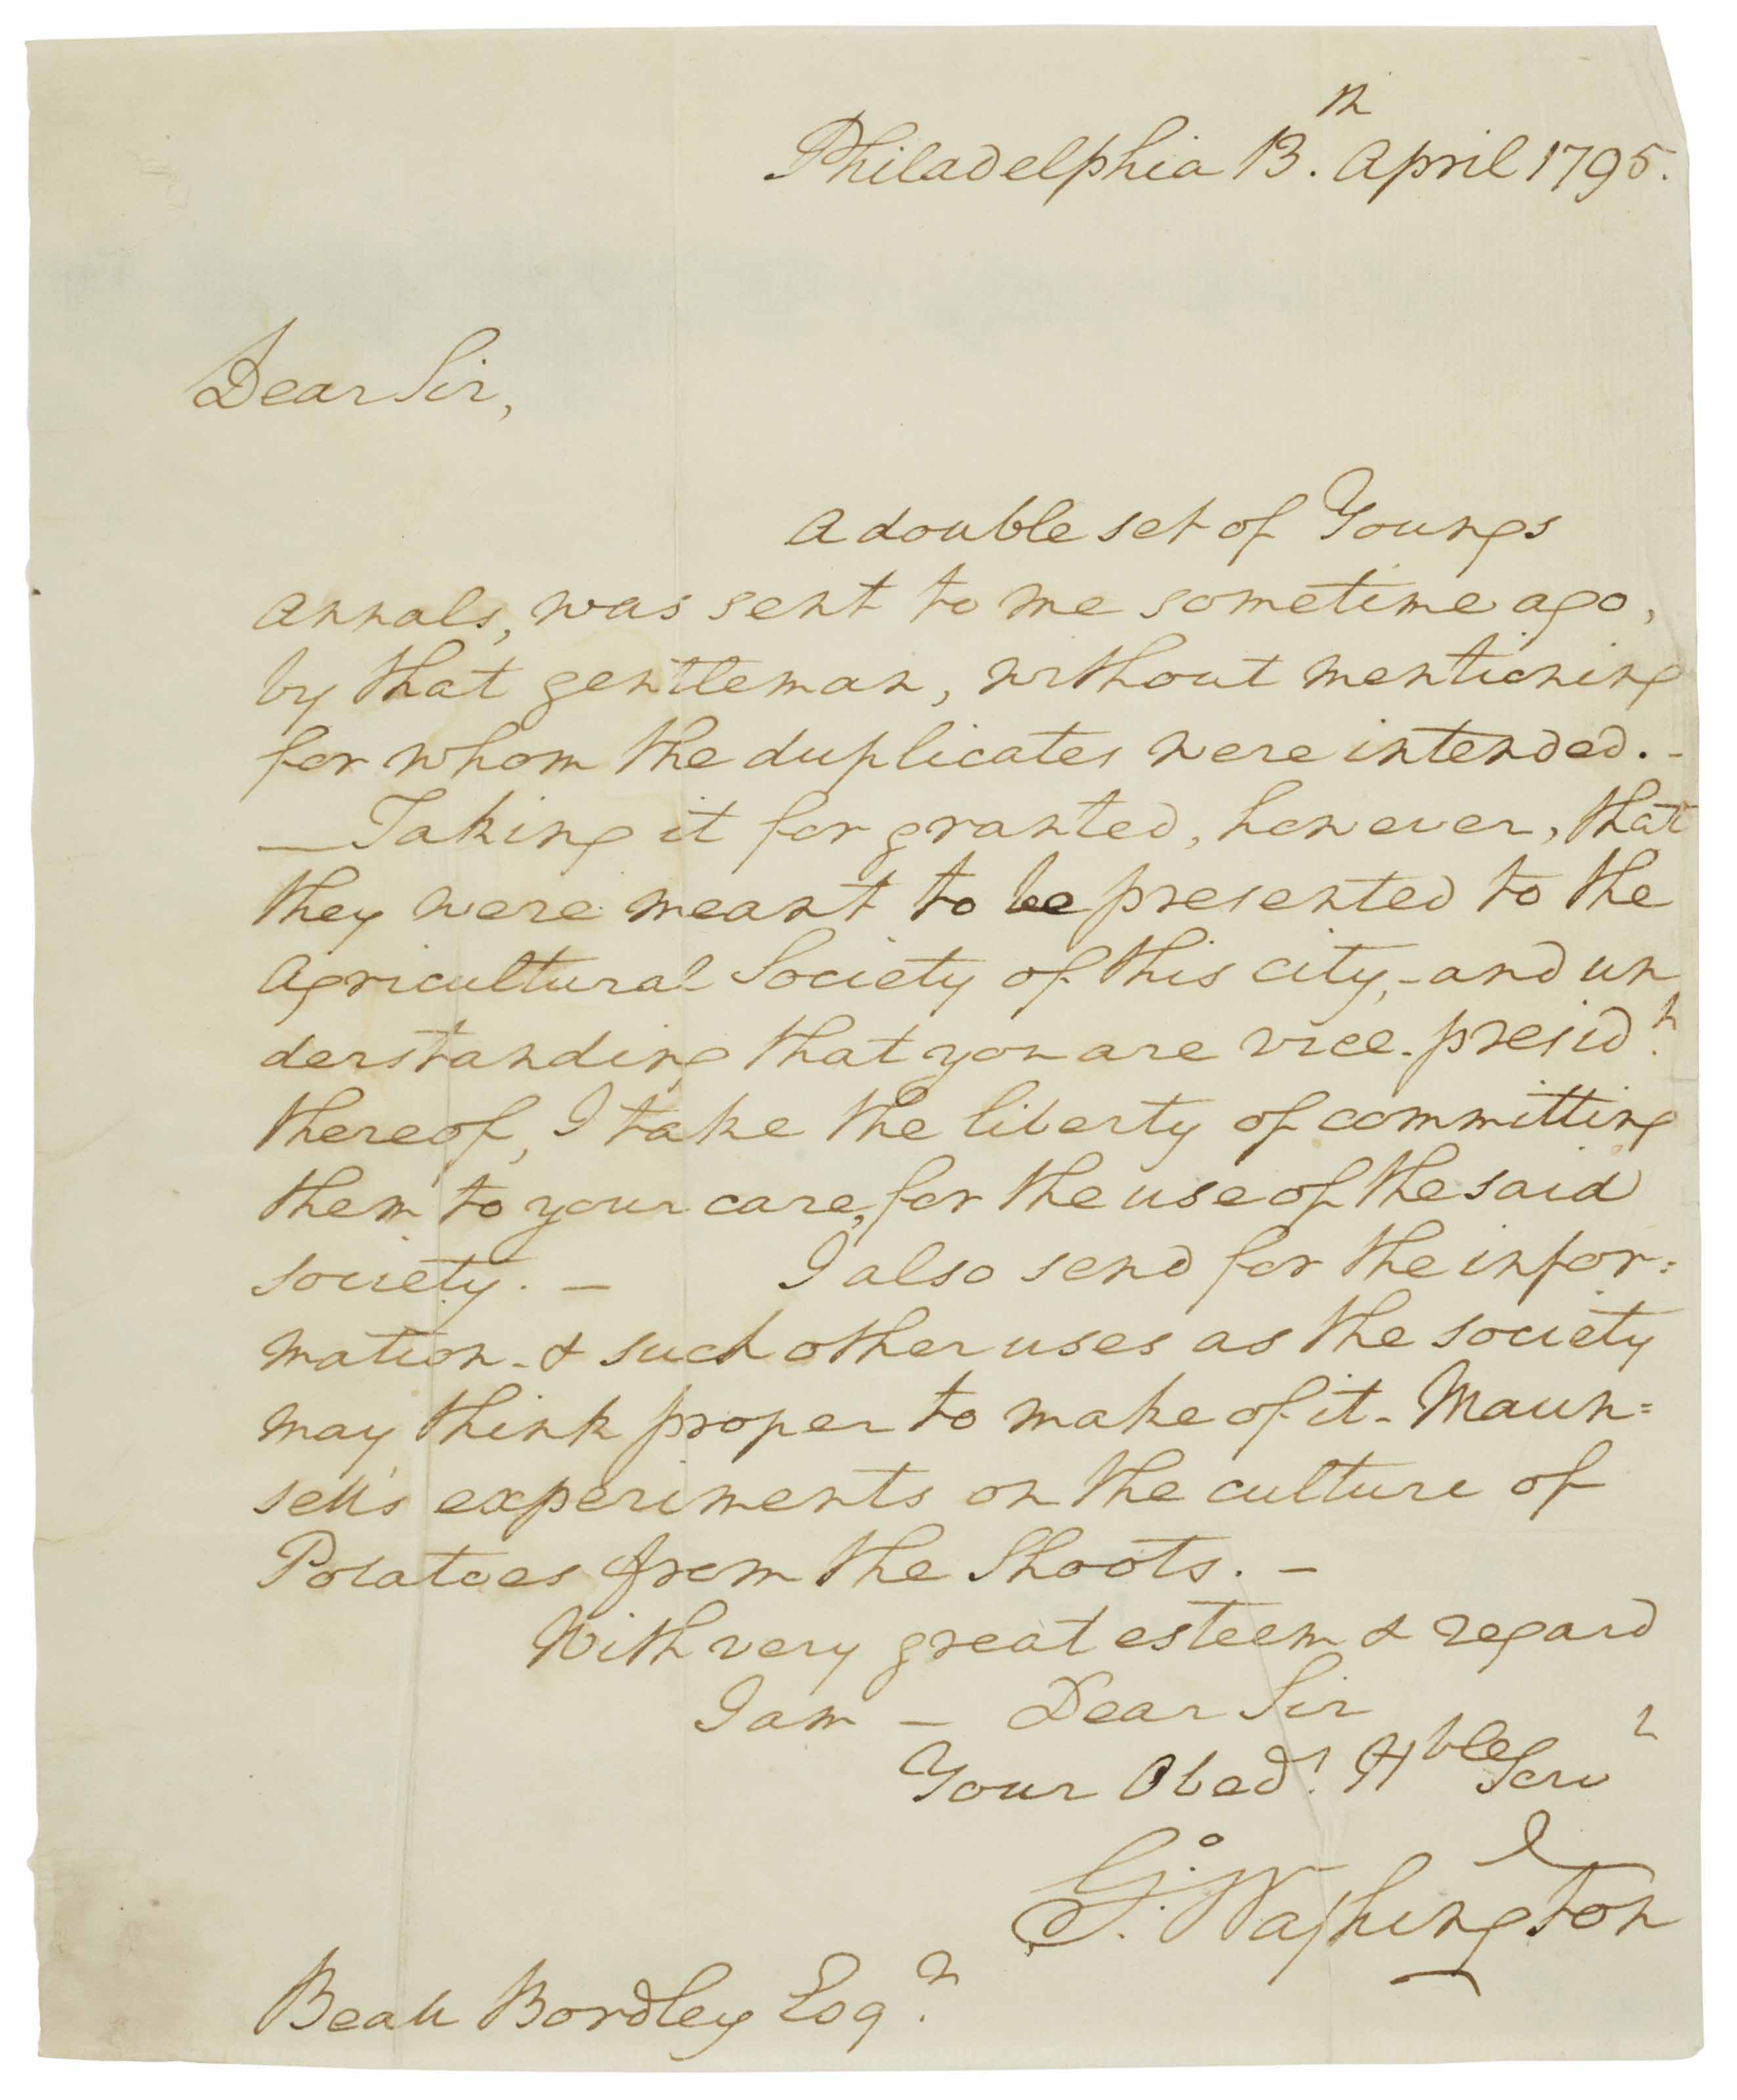 Philadelphia 13.th April 1795.
Dear Sir,
A double set of Youngs
Annals, was sent to me sometime ago,
by that gentleman, without mentioning
for whom the duplicates were intended.-
—Taking it for granted, however, that
they were meant to be presented to the
Agricultural Society of this city,-and un
derstanding that you are vice-presid.t
thereof, I take the liberty of committing
them to your care, for the use of the said
society.— I also send for the infor=
mation-& such other uses as the society
may think proper to make of it-Maun=
sell's experiments on the culture of
Potatoes from the Shoots.—
With very great esteem & regard
I am — Dear Sir
Your Obed.t Hble Serv.t
G.o Washington
Beall Bordley Esq.r